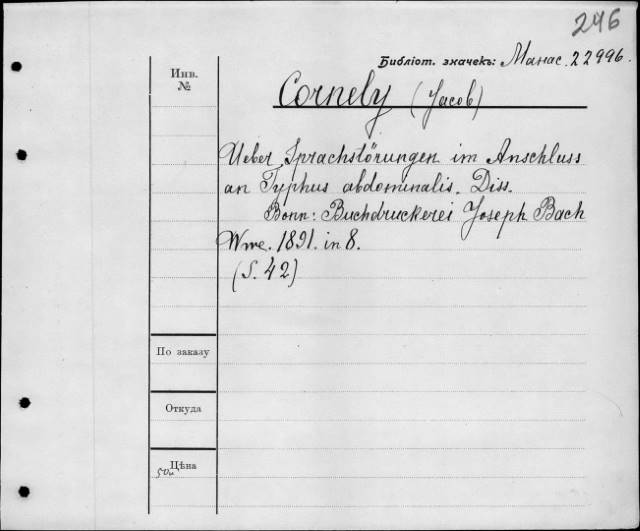 246
Библіот. значекъ: Манас. 22996.
Инв.
№
Cornely (Jacob)
Ueber Sprachstörungen im Anschluss
an Typhus abdominalis. Diss.
Bonn: Buchdruckerei Joseph Bach
Wwe. 1891. in 8.
(S. 42)
По заказу
Откуда
Цѣна